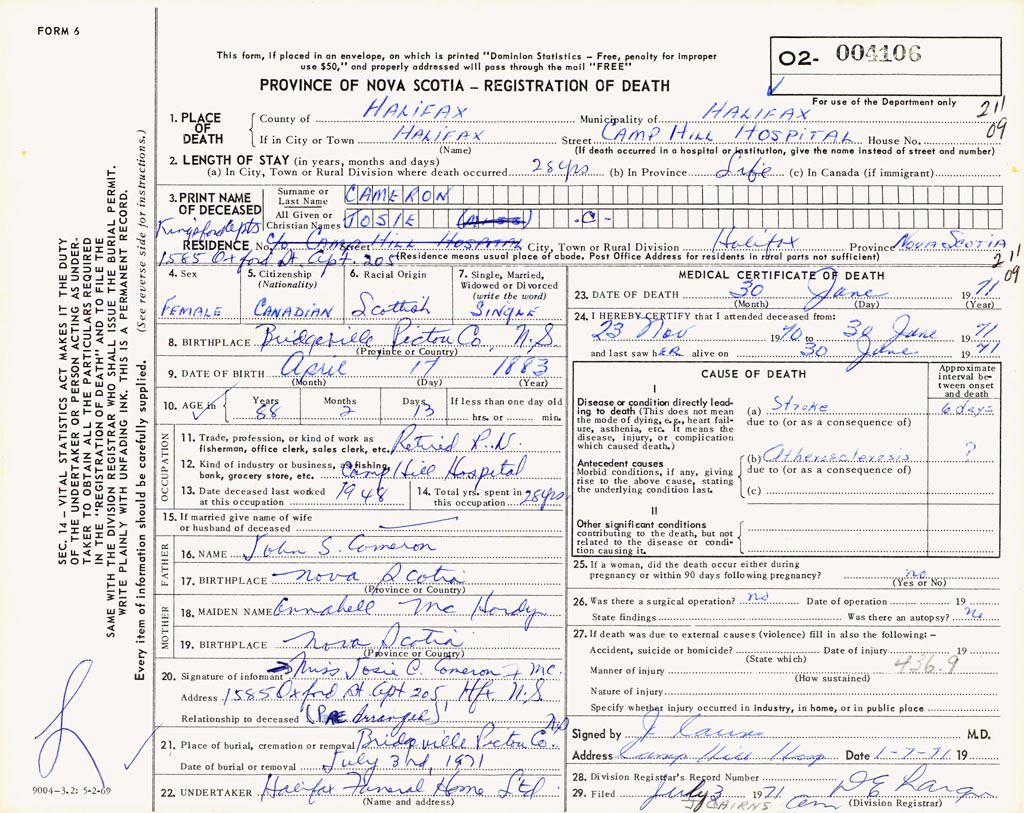 FORM 6
O2- 004106
This form, if placed in an envelope, on which is printed "Dominion Statistics - Free, penalty for improper
use $50," and properly addressed will pass through the mail "FREE"
PROVINCE OF NOVA SCOTIA - REGISTRATION OF DEATH
For use of the Department only
211
09
1. PLACE OF DEATH
County of HALIFAX Municipality of HALIFAX
If in City or Town HALIFAX Street CAMP HILL HOSPITAL House No.
(Name) (If death occurred in a hospital or institution, give the name instead of street and number)
2. LENGTH OF STAY (in years, months and days)
(a) In City, Town or Rural Division where death occurred 28 yrs (b) In Province Life (c) In Canada (if immigrant)
3. PRINT NAME OF DECEASED
Surname or Last Name CAMERON
All Given or Christian Names JOSIE (MISS) .C-
Kingsford Apts
RESIDENCE No. c/o CAMP HILL HOSPITAL Street City, Town or Rural Division Halifax Province NOVA SCOTIA
1585 Oxford St. Apt. 205 (Residence means usual place of abode. Post Office Address for residents in rural parts not sufficient)
211
09
4. Sex FEMALE
5. Citizenship (Nationality) CANADIAN
6. Racial Origin Scottish
7. Single, Married, Widowed or Divorced (write the word) SINGLE
8. BIRTHPLACE Bridgeville Pictou Co., N.S.
(Province or Country)
9. DATE OF BIRTH April 17 1883
(Month) (Day) (Year)
10. AGE in Years Months Days If less than one day old
88 2 13 hrs. or min.
OCCUPATION
11. Trade, profession, or kind of work as
fisherman, office clerk, sales clerk, etc. Retired R.N.
12. Kind of industry or business, as fishing,
bank, grocery store, etc. Camp Hill Hospital
13. Date deceased last worked
at this occupation 1948
14. Total yrs. spent in
this occupation 28 yrs
15. If married give name of wife
or husband of deceased
FATHER
16. NAME John S. Cameron
17. BIRTHPLACE Nova Scotia
(Province or Country)
MOTHER
18. MAIDEN NAME Annabell Mc Hardy
19. BIRTHPLACE Nova Scotia
(Province or Country)
20. Signature of informant Miss Josie C. Cameron
Address 1585 Oxford St. Apt 205, Hfx N.S
Relationship to deceased (PRE Arranged)
21. Place of burial, cremation or removal Bridgeville Pictou Co. N.S
Date of burial or removal July 3rd, 1971
22. UNDERTAKER Halifax Funeral Home Ltd
(Name and address)
MEDICAL CERTIFICATE OF DEATH
23. DATE OF DEATH 30 June 1971
(Month) (Day) (Year)
24. I HEREBY CERTIFY that I attended deceased from:
23 Nov 1970 to 30 June 1971
and last saw hER alive on 30 June 1971
CAUSE OF DEATH
Approximate interval between onset and death
I
Disease or condition directly leading to death (This does not mean the mode of dying, e.g., heart failure, asthenia, etc. It means the disease, injury, or complication which caused death.)
(a) Stroke 6 days
due to (or as a consequence of)
Antecedent causes
Morbid conditions, if any, giving rise to the above cause, stating the underlying condition last.
(b) Atherosclerosis ?
due to (or as a consequence of)
(c)
II
Other significant conditions
contributing to the death, but not related to the disease or condition causing it.
25. If a woman, did the death occur either during
pregnancy or within 90 days following pregnancy? no
(Yes or No)
26. Was there a surgical operation? no Date of operation 19
State findings Was there an autopsy? No
27. If death was due to external causes (violence) fill in also the following: -
Accident, suicide or homicide? Date of injury 19
(State which)
436.9
Manner of injury
(How sustained)
Nature of injury
Specify whether injury occurred in industry, in home, or in public place
Signed by J. Cairns M.D.
Address Camp Hill Hosp Date 1-7-71 19
28. Division Registrar's Record Number
29. Filed July 3 1971
J CAIRNS (Division Registrar)
SEC. 14 - VITAL STATISTICS ACT MAKES IT THE DUTY
OF THE UNDERTAKER OR PERSON ACTING AS UNDERTAKER TO OBTAIN ALL THE PARTICULARS REQUIRED
IN THE "REGISTRATION OF DEATH" AND TO FILE THE
SAME WITH THE DIVISION REGISTRAR WHO SHALL ISSUE THE BURIAL PERMIT.
WRITE PLAINLY WITH UNFADING INK. THIS IS A PERMANENT RECORD.
Every item of information should be carefully supplied. (See reverse side for instructions.)
9004-3.2: 5-2-69